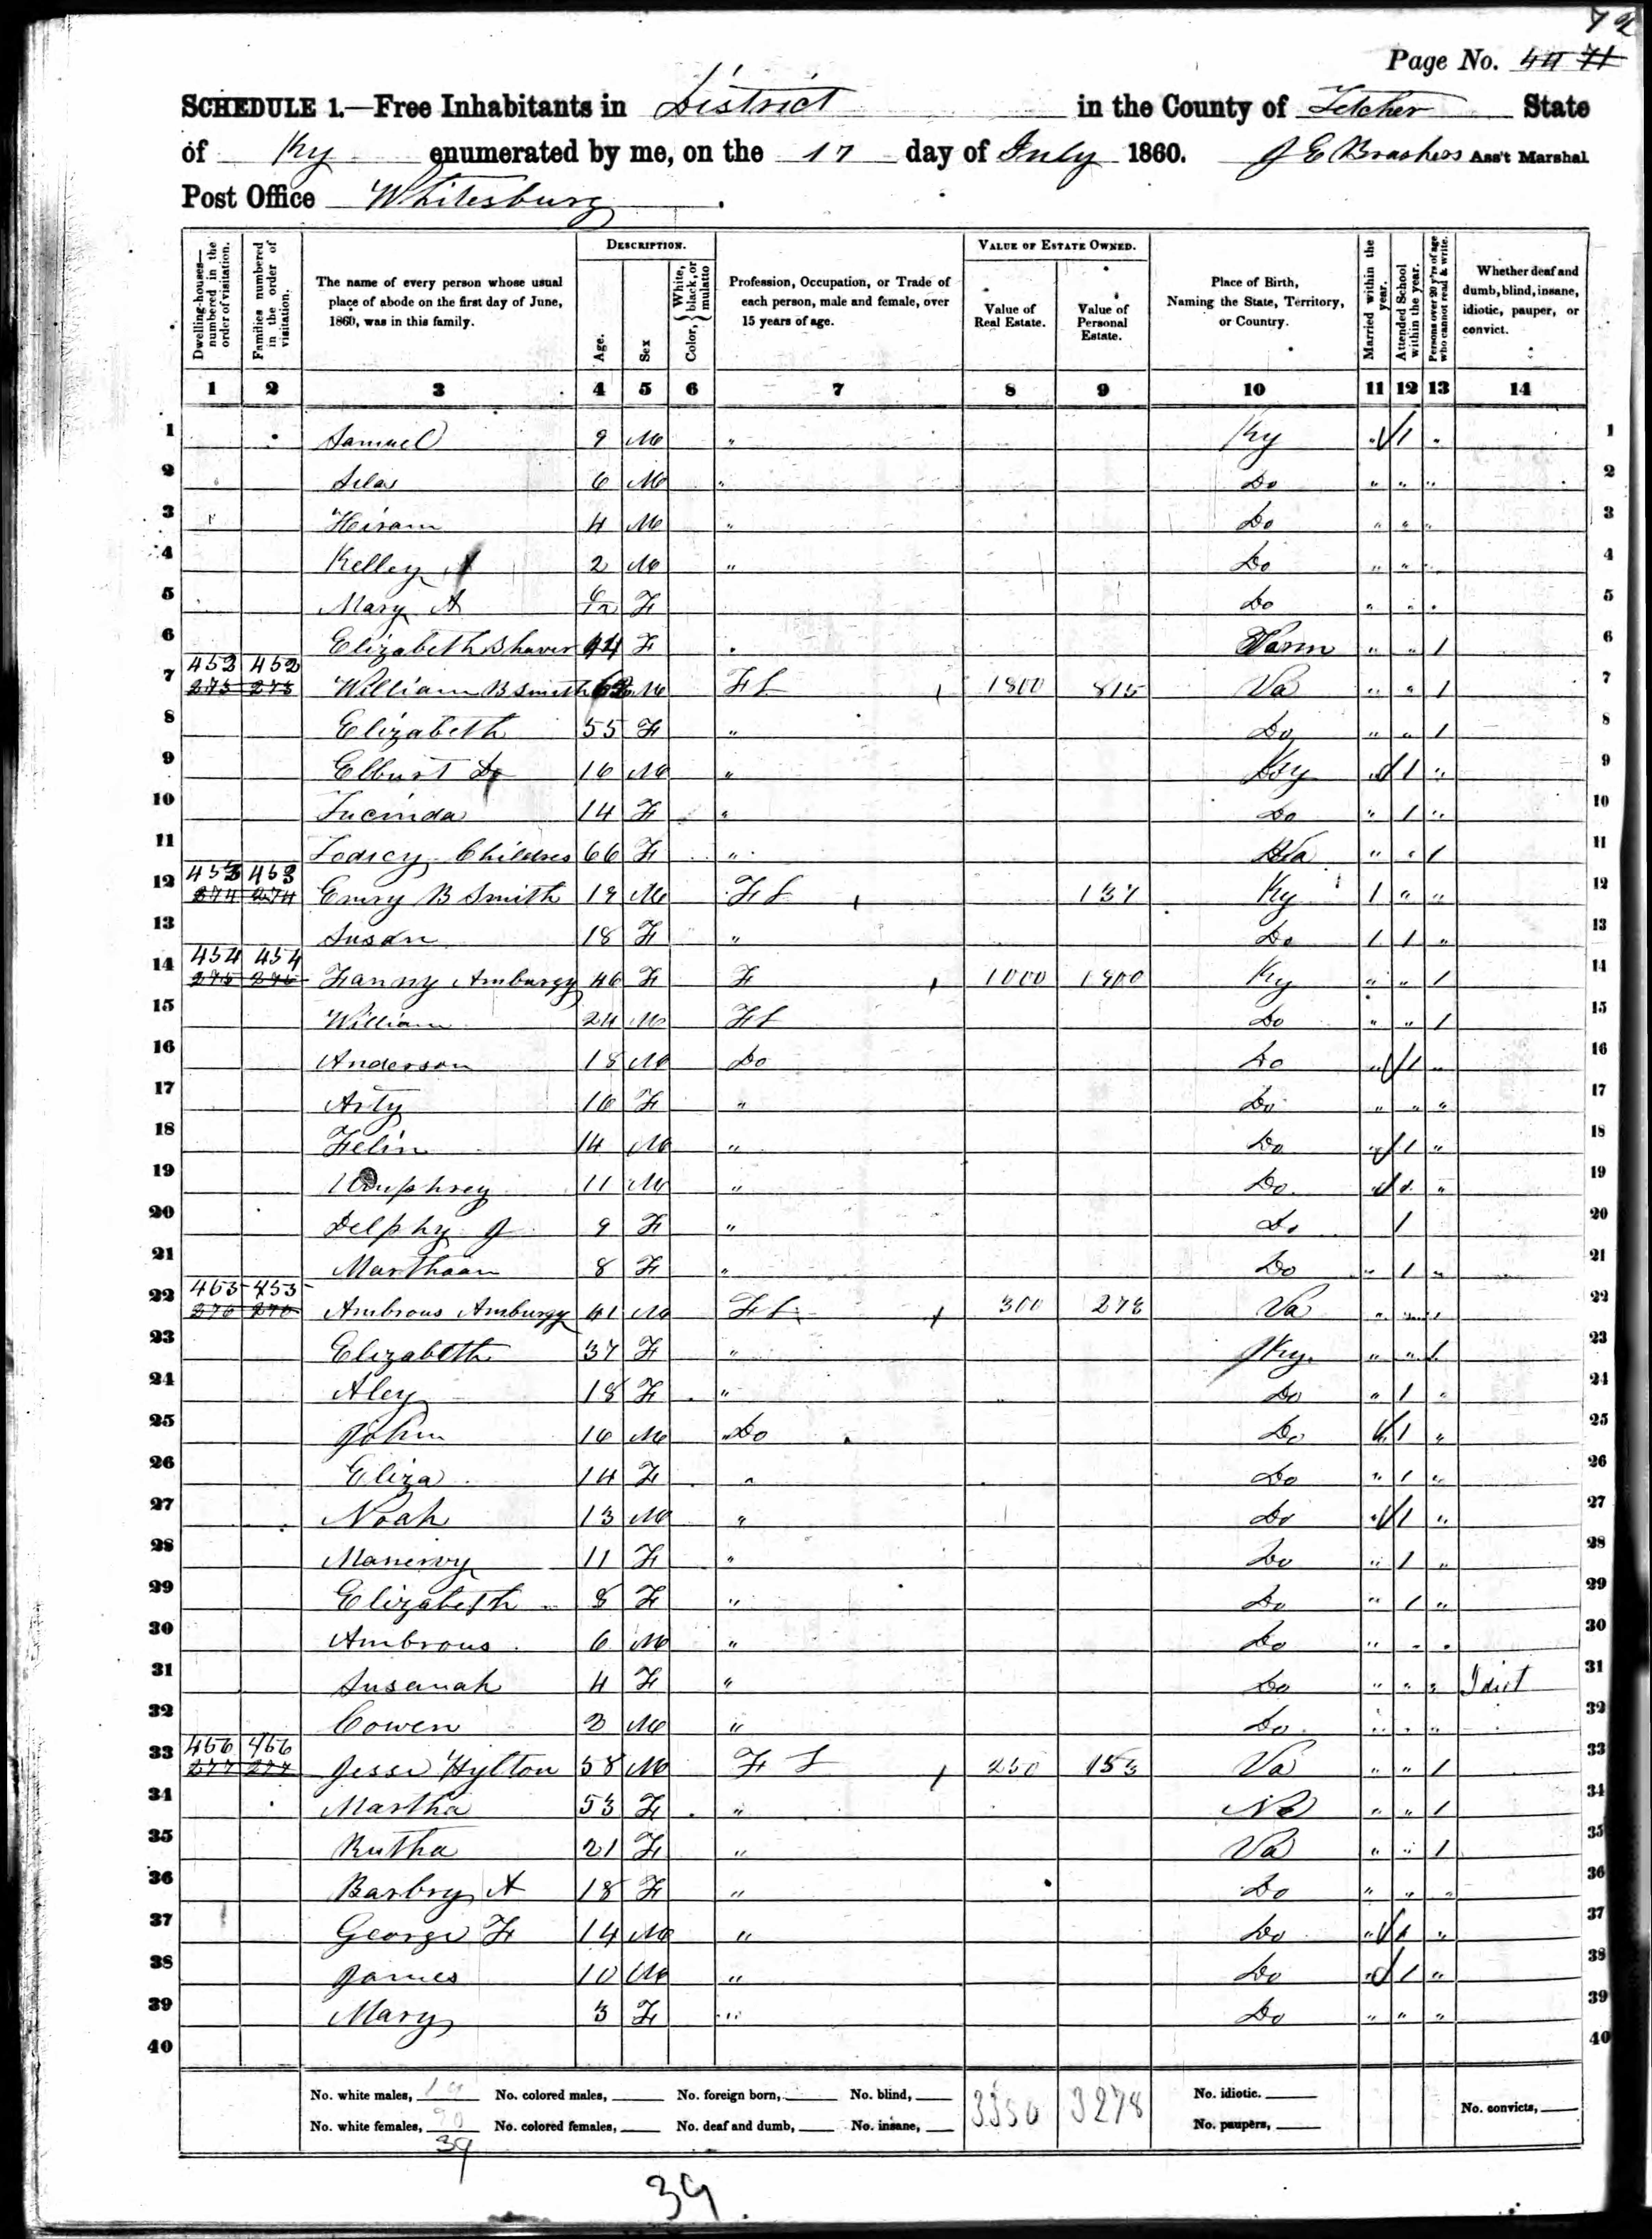 72
Page No. 44 71
SCHEDULE 1.—Free Inhabitants in District in the County of Letcher State
of Ky enumerated by me, on the 17 day of July 1860. J E Brashers Ass't Marshal
Post Office Whitesburg
Dwelling-houses—numbered in the order of visitation.
Families numbered in the order of visitation.
The name of every person whose usual place of abode on the first day of June, 1860, was in this family.
DESCRIPTION.
Age.
Sex
Color, { White, black, or mulatto
Profession, Occupation, or Trade of each person, male and female, over 15 years of age.
VALUE OF ESTATE OWNED.
Value of Real Estate.
Value of Personal Estate.
Place of Birth, Naming the State, Territory, or Country.
Married within the year.
Attended School within the year.
Persons over 20 y'rs of age who cannot read & write.
Whether deaf and dumb, blind, insane, idiotic, pauper, or convict.
1 2 3 4 5 6 7 8 9 10 11 12 13 14
1 Samuel 9 M " Ky " 1 " 1
2 Silas 6 M " Do " " " 2
3 Hiram 4 M " Do " " " 3
4 Kelley 2 M " Do " " " 4
5 Mary A 6/12 F Do " " " 5
6 Elizabeth Shaver 44 F " " " 1 6
452 452
7 273 273 William B Smith M F L 1800 815 Va " " 1 7
8 Elizabeth 55 F " Do " " 1 8
9 Elburt 16 M " Ky " 1 " 9
10 Lucinda 14 F " Do " 1 " 10
11 Lodicy Childres 66 F " Va " " 1 11
453 453
12 274 274 Emry B Smith 19 M F L 137 Ky 1 " " 12
13 Susan 18 F " Do 1 1 " 13
454 454
14 275 275 Fanny Amburgy 46 F F 1000 1900 Ky " " 1 14
15 William 24 M F L Do " " 1 15
16 Anderson 18 M Do Do " 1 " 16
17 Arty 16 F " Do " " " 17
18 Felin 14 M " Do " 1 " 18
19 Umphrey 11 M " Do " 1 " 19
20 Delphy J 9 F " Do 1 20
21 Marthaan 8 F " Do " 1 " 21
455 455
22 276 276 Ambrous Amburgy 41 M F L 300 273 Va " " " 22
23 Elizabeth 37 F " Ky " " 1 23
24 Aley 18 F " Do " 1 " 24
25 John 16 M " Do Do 1 " 25
26 Eliza 14 F " Do " 1 " 26
27 Noah 13 M " Do " 1 " 27
28 Manervy 11 F " Do " 1 " 28
29 Elizabeth 8 F " Do " 1 " 29
30 Ambrous 6 M " Do " " " 30
31 Susanah 4 F " Do " " " Idiot 31
32 Cowen 2 M " Do " " " 32
456 456
33 277 277 Jesse Hylton 58 M F L 250 153 Va " " 1 33
34 Martha 53 F " Nc " " 1 34
35 Rutha 21 F " Va " " 1 35
36 Barbry A 18 F " Do " " " 36
37 George F 14 M " Do " 1 " 37
38 James 10 M " Do " 1 " 38
39 Mary 3 F " Do " " " 39
40 40
No. white males, 19 No. colored males, No. foreign born, No. blind, 3350 3278 No. idiotic.
No. white females, 20 No. colored females, No. deaf and dumb, No. insane, No. paupers, No. convicts,
39
39